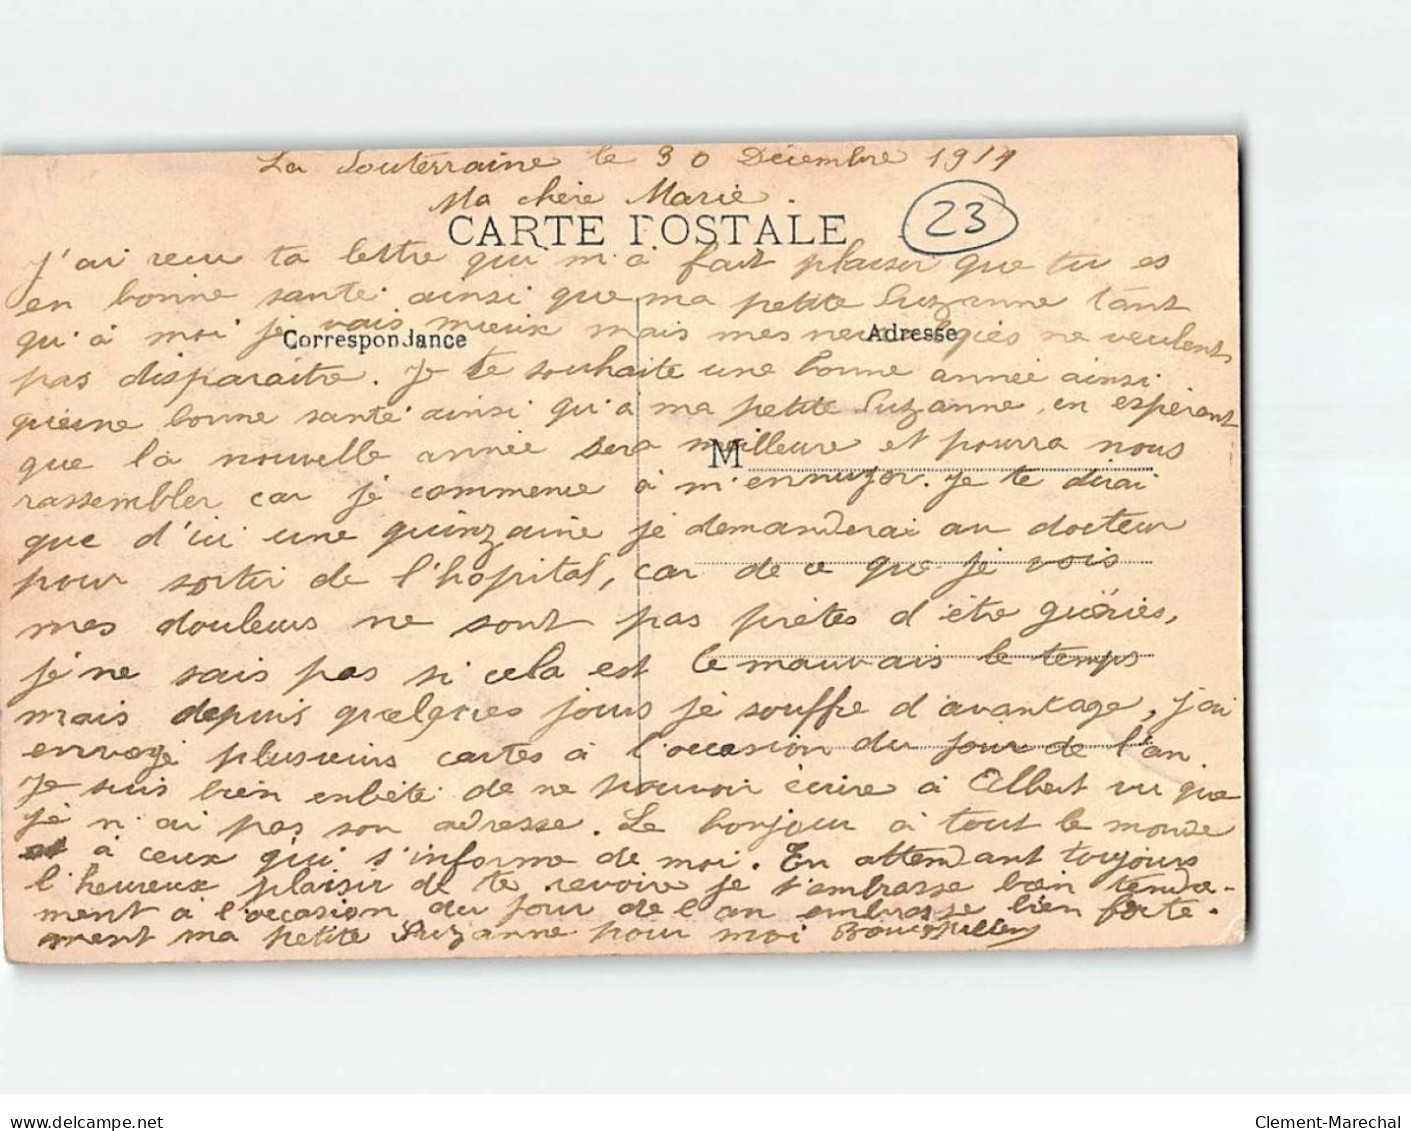 La Souterraine le 30 Décembre 1914
Ma chère Marie.
23
CARTE POSTALE
J'ai reçu ta lettre qui m'a fait plaisir que tu es
en bonne santé ainsi que ma petite Suzanne tant
qu'à moi je vais mieux mais mes neuralgies ne veulent
Correspondance
Adresse
pas disparaitre. Je te souhaite une bonne année ainsi
qu'une bonne santé ainsi qu'a ma petite Suzanne, en espérent
que la nouvelle année sera meilleure et pourra nous
M
rassembler car je commence à m'ennuyer. Je te dirai
que d'ici une quinzaine je demanderai au docteur
pour sortir de l'hopital, car de ce que je vois
mes douleurs ne sont pas prètes d'ètre guéries,
je ne sais pas si cela est le mauvais le temps
mais depuis quelques jours je souffre d'avantage, j'ai
envoyé plusieurs cartes à l'occasion du jour de l'an.
Je suis bien enbété de ne pouvoir écrire à Albert vu que
je n'ai pas son adresse. Le bonjour à tout le monde
à ceux qui s'informe de moi. En attendant toujours
l'heureux plaisir de te revoire je t'embrasse bien tendre-
ment à l'occasion du jour de l'an embrasse bien forte-
ment ma petite Suzanne pour moi
Clement-Marechal
www.delcampe.net